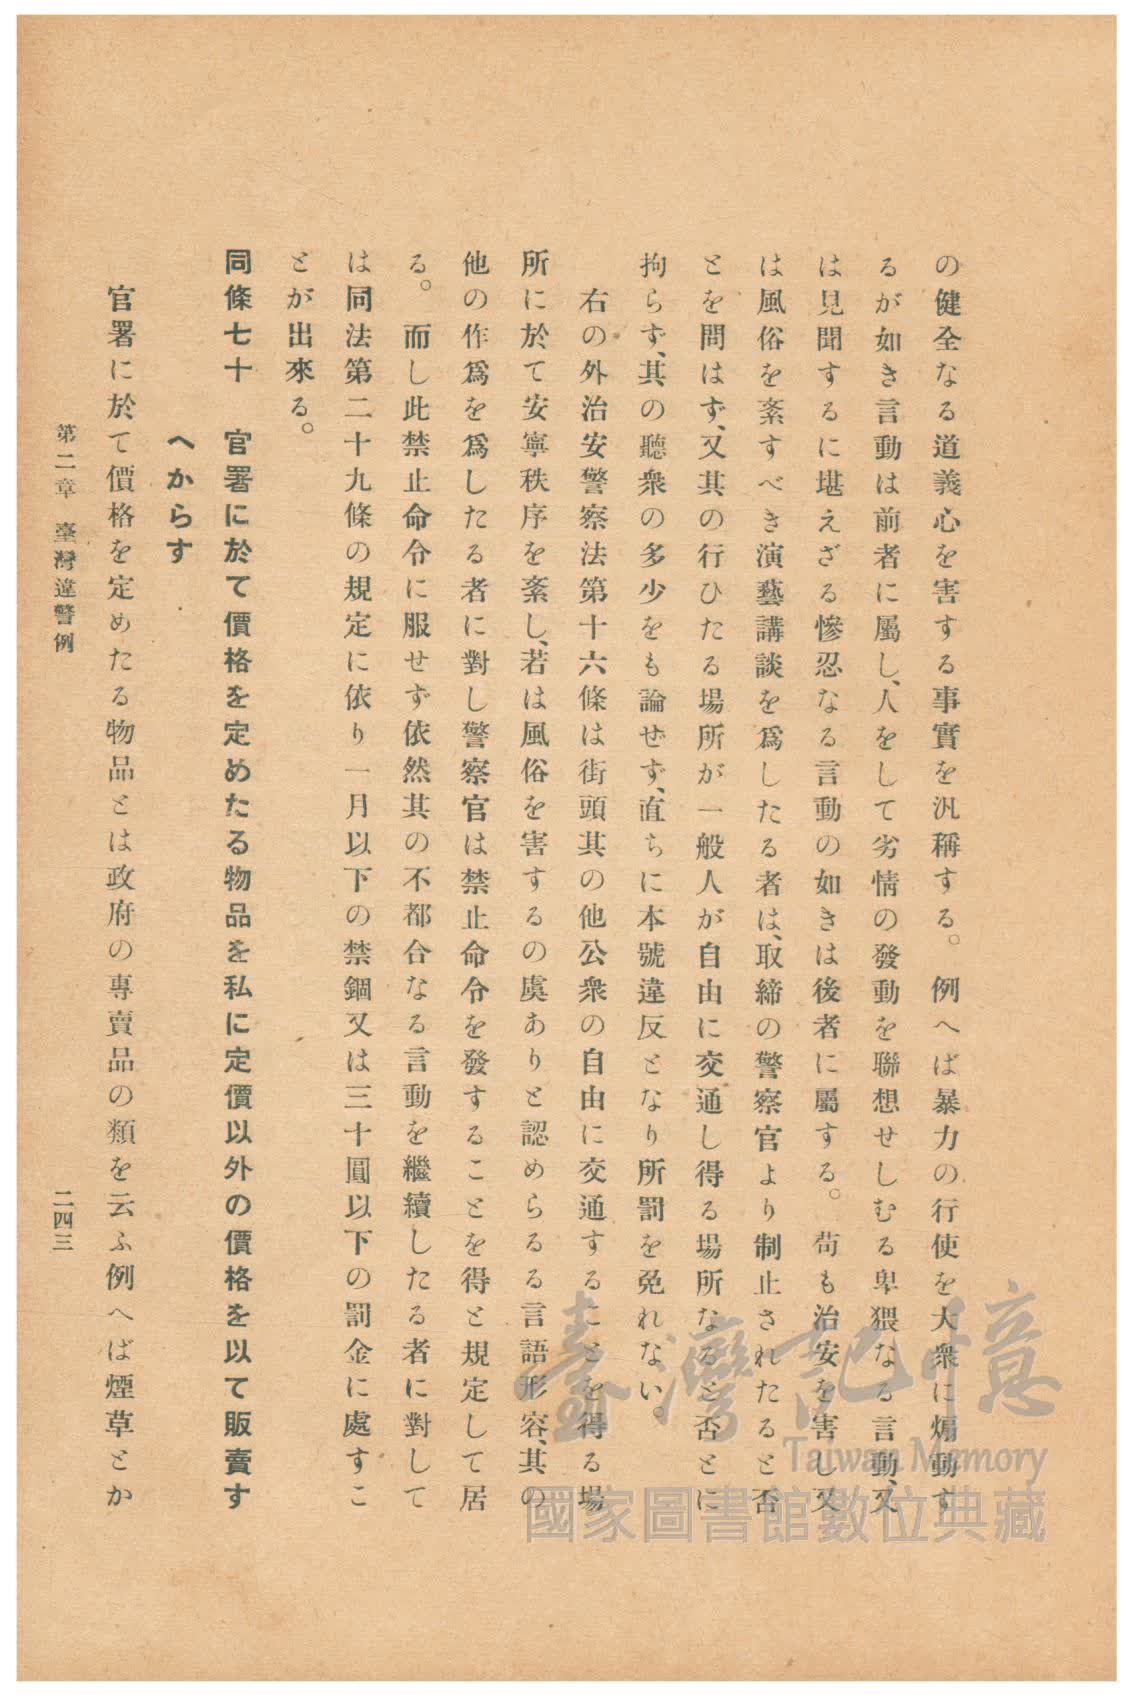 の健全なる道義心を害する事實を汎稱する。例へば暴力の行使を大衆に煽動す
るが如き言動は前者に屬し、人をして劣情の發動を聯想せしむる卑猥なる言動、又
は見聞するに堪えざる慘忍なる言動の如きは後者に屬する。苟も治安を害し又
は風俗を紊すべき演藝講談を爲したる者は、取締の警察官より制止されたると否
とを問はず、又其の行ひたる場所が一般人が自由に交通し得る場所なると否とに
拘らず、其の聽衆の多少をも論ぜず、直ちに本號違反となり所罰を免れない。
右の外治安警察法第十六條は街頭其の他公衆の自由に交通することを得る場
所に於て安寧秩序を紊し、若は風俗を害するの虞ありと認めらるる言語形容、其の
他の作爲を爲したる者に對し警察官は禁止命令を發することを得と規定して居
る。而し此禁止命令に服せず依然其の不都合なる言動を繼續したる者に對して
は同法第二十九條の規定に依り一月以下の禁錮又は三十圓以下の罰金に處すこ
とが出來る。
同條七十 官署に於て價格を定めたる物品を私に定價以外の價格を以て販賣す
へからす
官署に於て價格を定めたる物品とは政府の專賣品の類を云ふ例へば煙草とか
第二章 臺灣違警例
二四三
臺灣記憶
Taiwan Memory
國家圖書館數位典藏